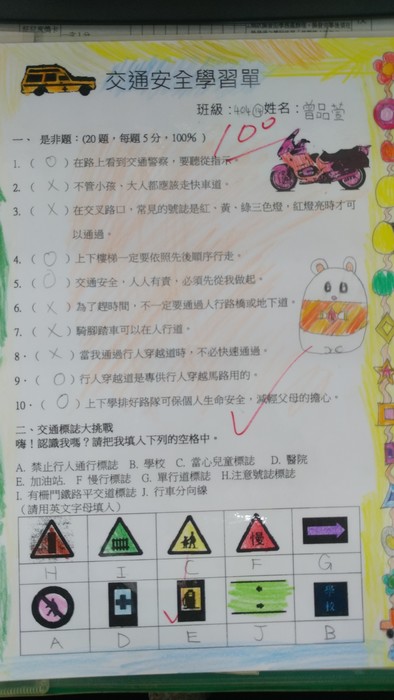 交通安全學習單
班級：404⑭姓名：曾品萱
100
一、 是非題：(20題，每題5分，100%)
1. (○) 在路上看到交通警察，要聽從指示。
2. (×) 不管小孩、大人都應該走快車道。
3. (×) 在交叉路口，常見的號誌是紅、黃、綠三色燈，紅燈亮時才可
以通過。
4. (○) 上下樓梯一定要依照先後順序行走。
5. (○) 交通安全，人人有責，必須先從我做起。
6. (×) 為了趕時間，不一定要通過人行路橋或地下道。
7. (×) 騎腳踏車可以在人行道。
8. (×) 當我通過行人穿越道時，不必快速通過。
9. (○) 行人穿越道是專供行人穿越馬路用的。
10. (○) 上下學排好路隊可保個人生命安全，減輕父母的擔心。
二、交通標誌大挑戰
嗨！認識我嗎？請把我填入下列的空格中。
A. 禁止行人通行標誌 B. 學校 C. 當心兒童標誌 D. 醫院
E. 加油站. F 慢行標誌 G. 單行道標誌 H.注意號誌標誌
I. 有柵門鐵路平交道標誌 J. 行車分向線
(請用英文字母填入)
慢
H I C F G
學校
A D E J B